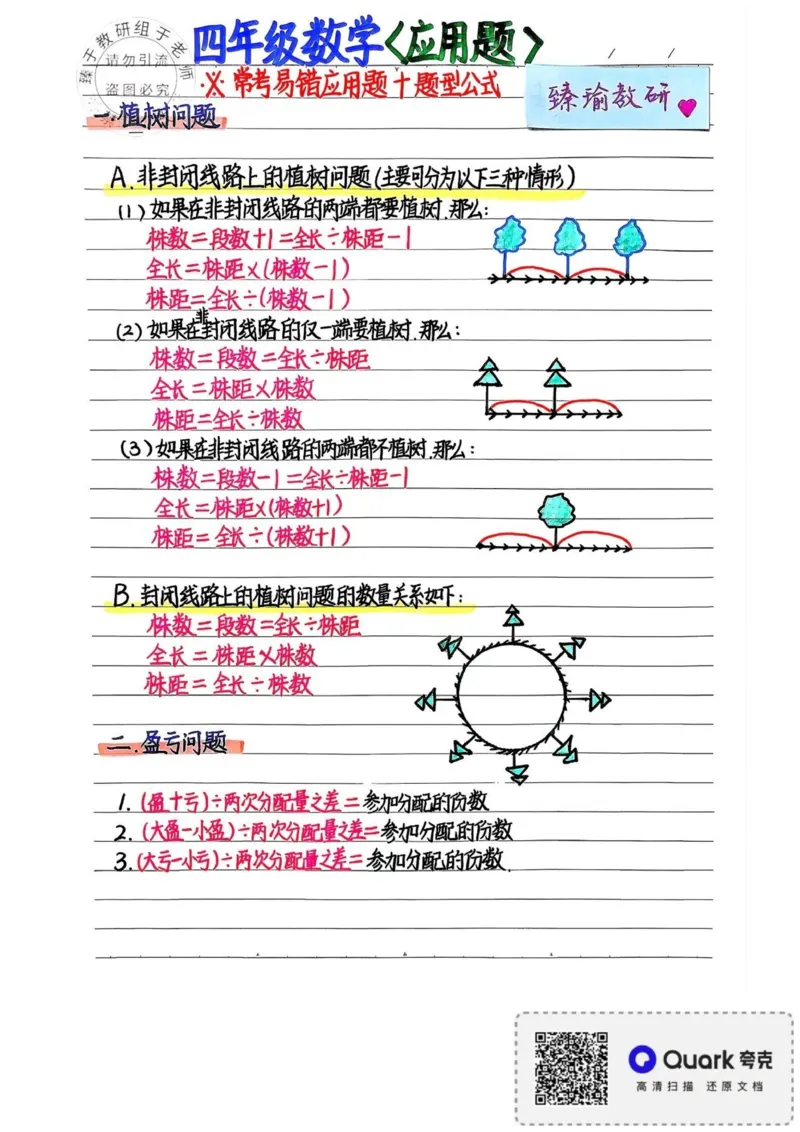 臻于教研组于老师
请勿引流
盗图必究
四年级数学〈应用题〉
※ 常考易错应用题+题型公式
臻瑜教研
一.植树问题
A.非封闭线路上的植树问题(主要可分为以下三种情形)
(1)如果在非封闭线路的两端都要植树.那么:
株数=段数+1=全长÷株距-1
全长=株距×(株数-1)
株距=全长÷(株数-1)
(2)如果在非封闭线路的仅一端要植树.那么:
株数=段数=全长÷株距
全长=株距×株数
株距=全长÷株数
(3)如果在非封闭线路的两端都不植树.那么:
株数=段数-1=全长÷株距-1
全长=株距×(株数+1)
株距=全长÷(株数+1)
B.封闭线路上的植树问题的数量关系如下:
株数=段数=全长÷株距
全长=株距×株数
株距=全长÷株数
二.盈亏问题
1.(盈+亏)÷两次分配量之差=参加分配的份数
2.(大盈-小盈)÷两次分配量之差=参加分配的份数
3.(大亏-小亏)÷两次分配量之差=参加分配的份数.
Quark夸克
高清扫描 还原文档